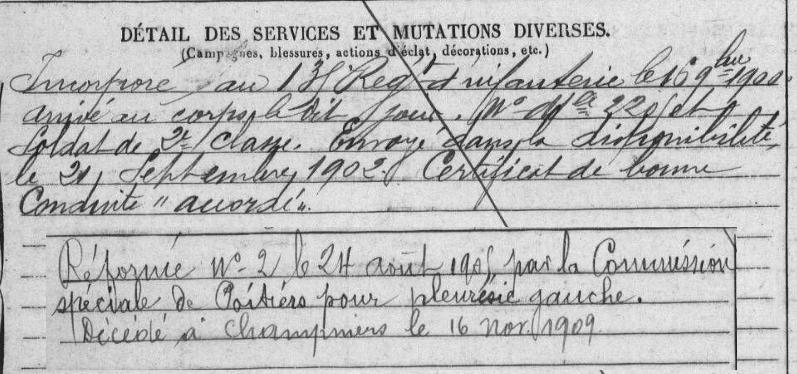 DÉTAIL DES SERVICES ET MUTATIONS DIVERSES.
(Campagnes, blessures, actions d'éclat, décorations, etc.)
Incorporé au Régt d'infanterie le 16 9bre 1900
arrivé au corps le dit jour. No Mle et
Soldat de 2e classe. Envoyé dans la disponibilité
le 21 Septembre 1902. Certificat de bonne
Conduite "accordé".
Réformé No 2 le 24 août par la Commission
spéciale de Poitiers pour pleurésie gauche.
Décédé à Champniers le 16 nov. 1909